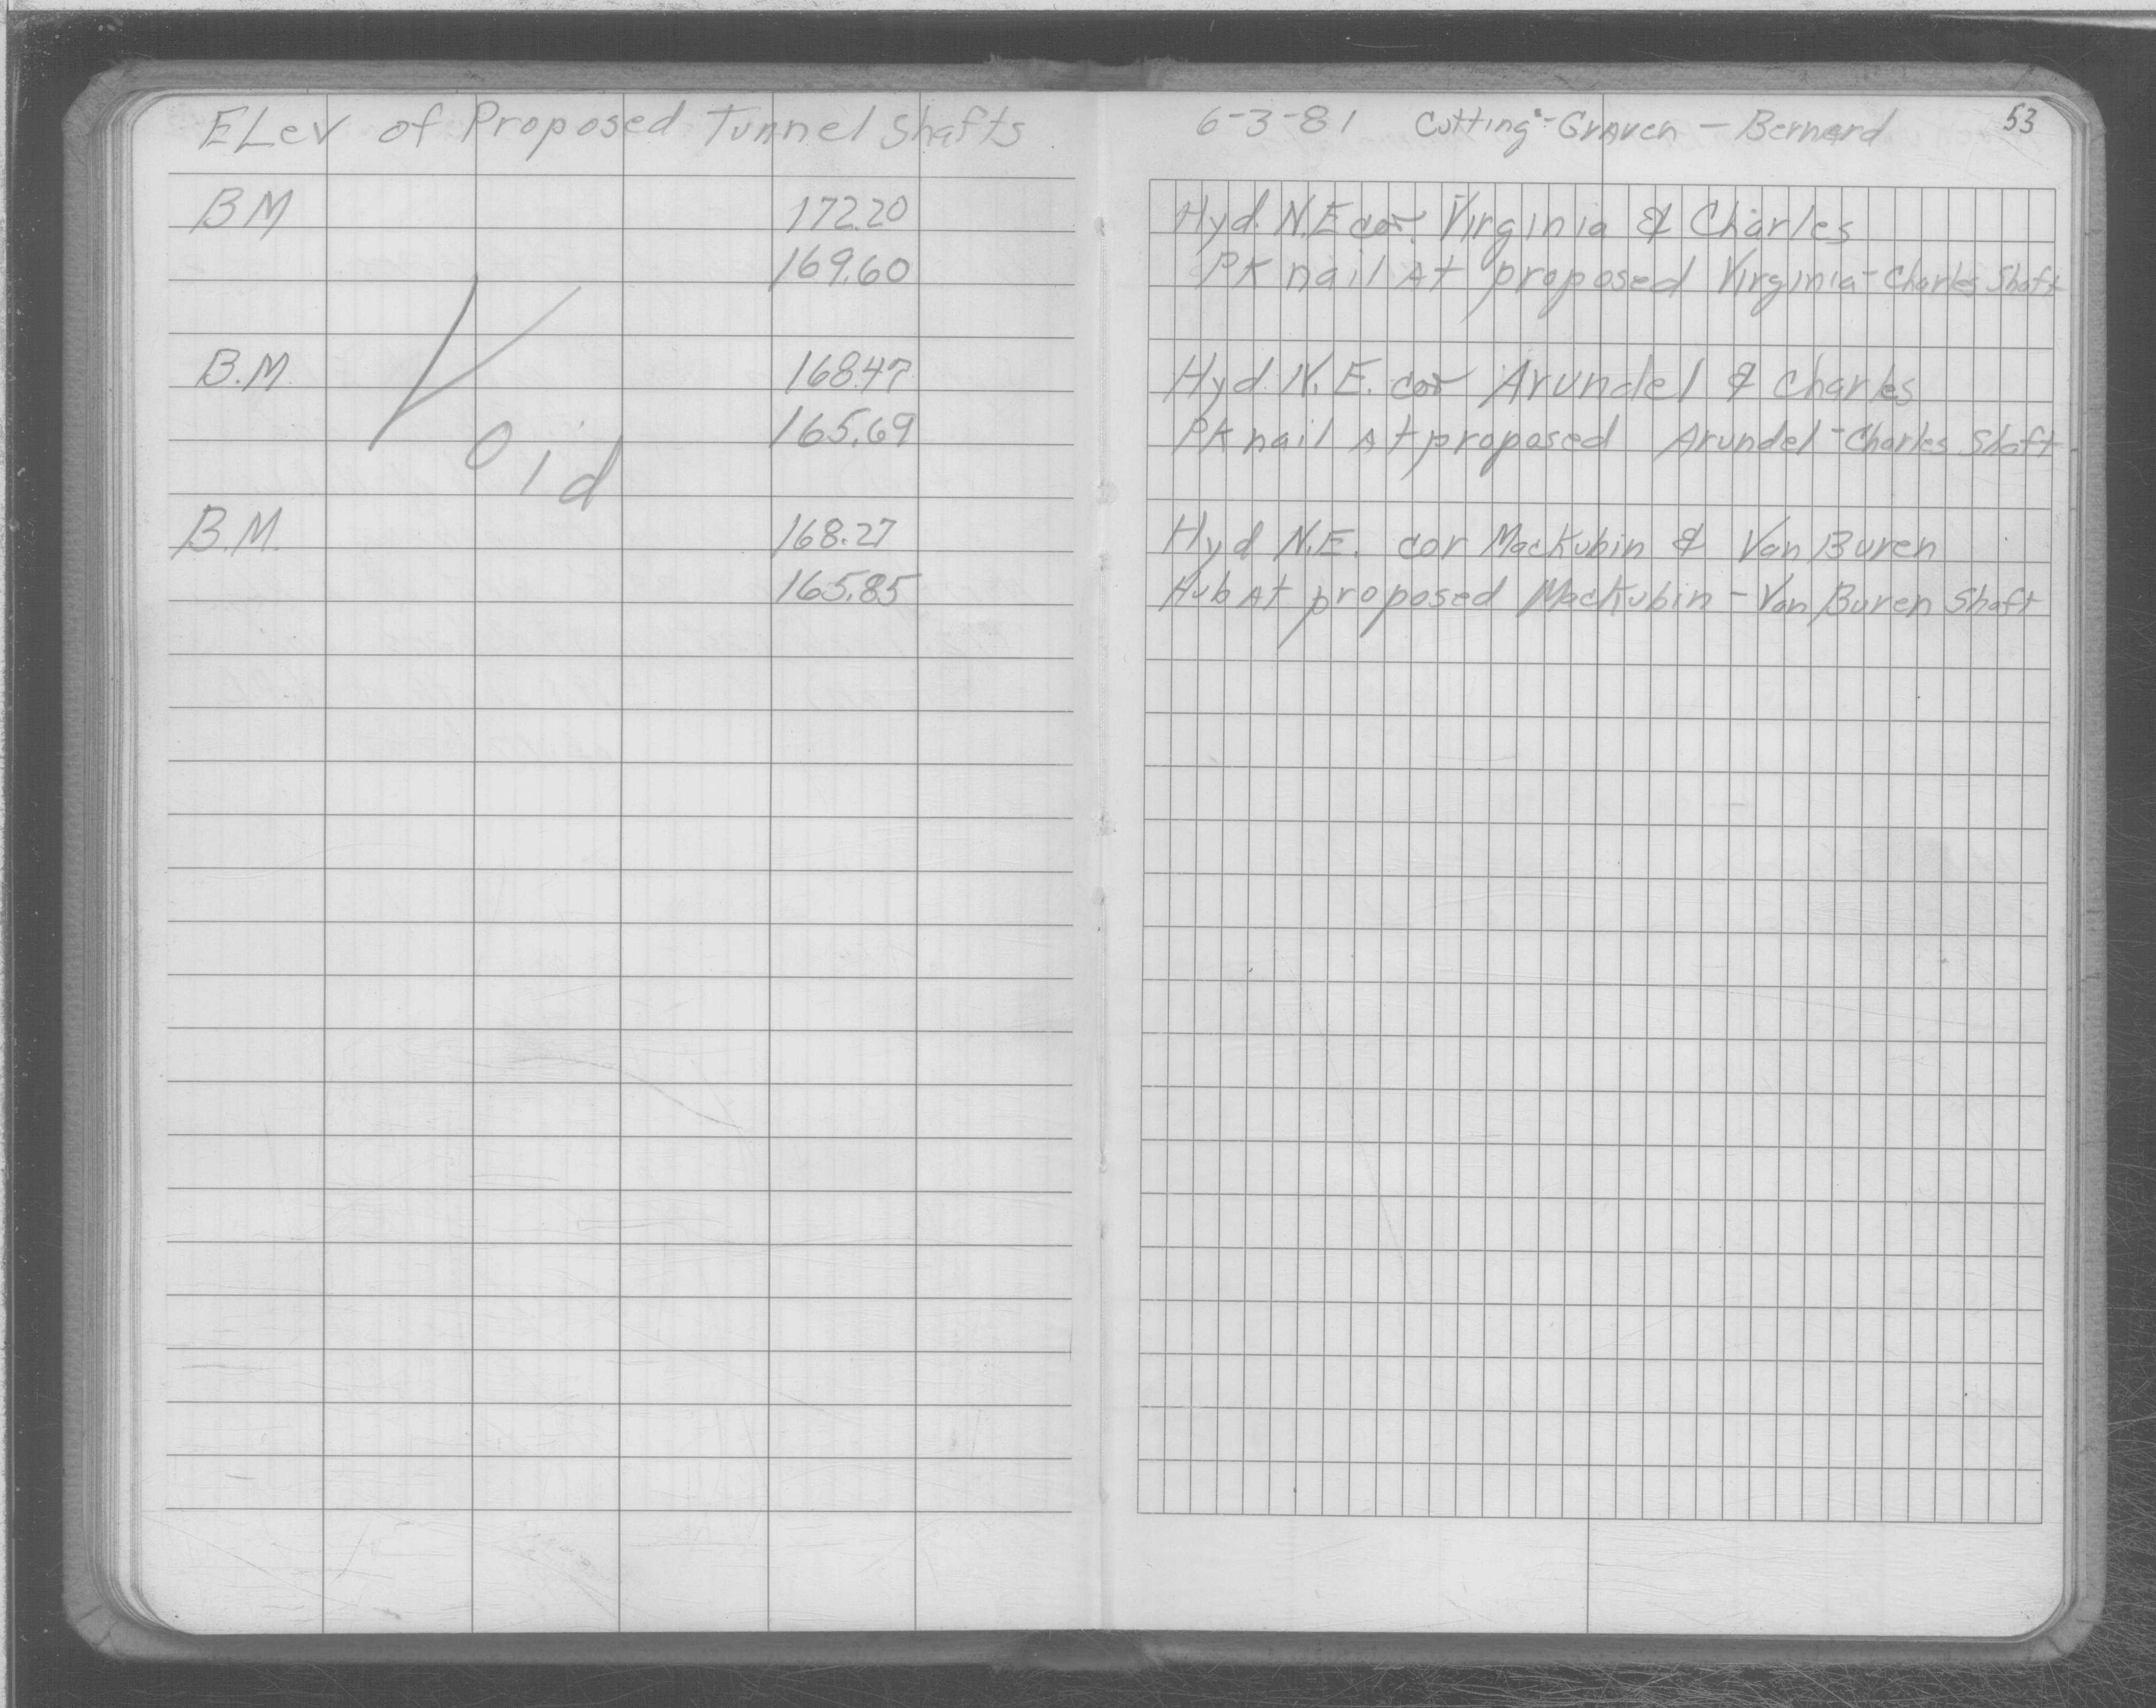 ELev of Proposed Tunnel Shafts
BM 172.20
169.60
B.M. 168.47
165.69
Void
B.M. 168.27
165.85
6-3-81 Cutting - Graven - Bernard 53
Hyd. N.E cor. Virginia & Charles
PK nail At proposed Virginia - Charles Shaft
Hyd. N. E. cor Arundel & Charles
PK nail At proposed Arundel - Charles Shaft
Hyd N.E. cor MacKubin & Van Buren
Hub At proposed MacKubin - Van Buren Shaft